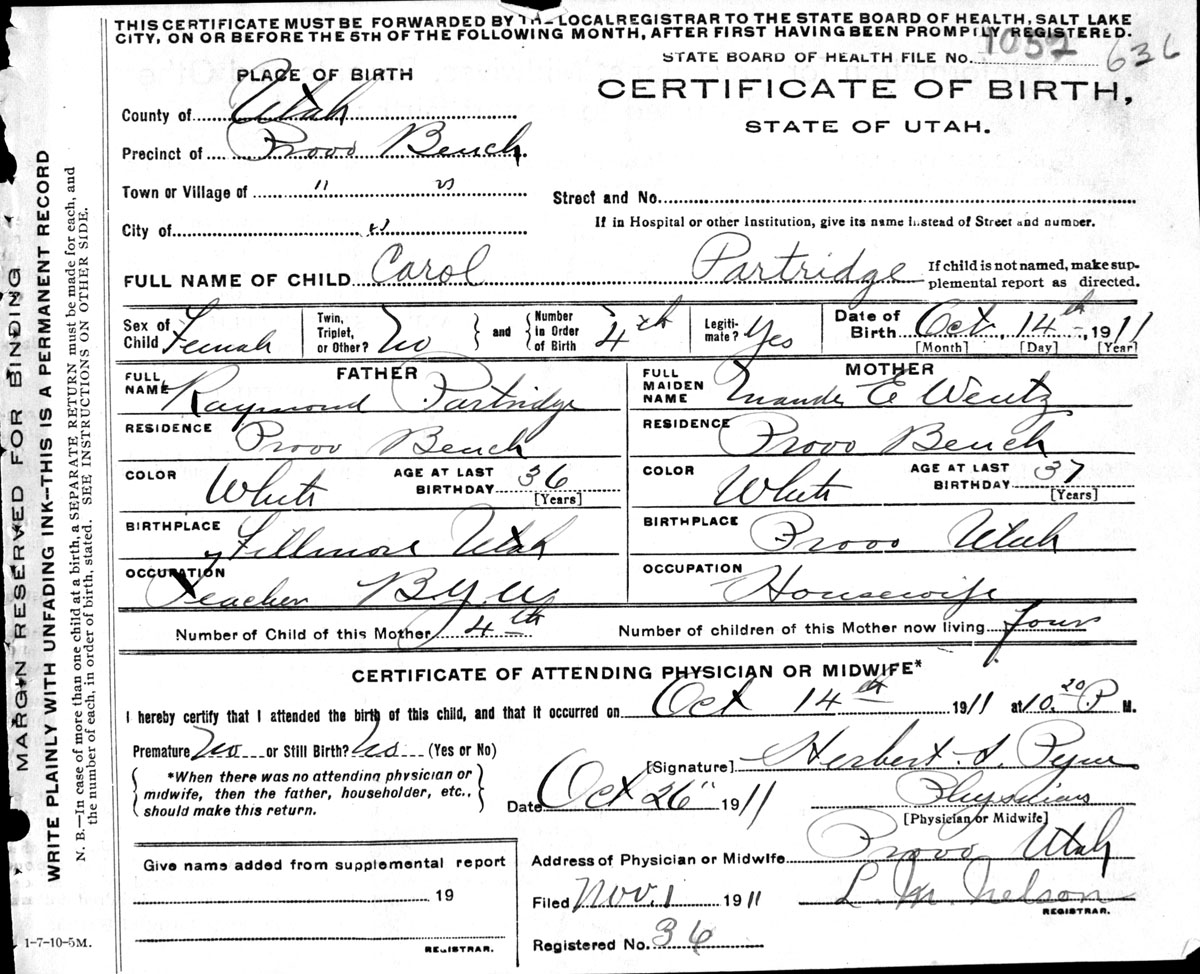 THIS CERTIFICATE MUST BE FORWARDED BY THE LOCAL REGISTRAR TO THE STATE BOARD OF HEALTH, SALT LAKE
CITY, ON OR BEFORE THE 5TH OF THE FOLLOWING MONTH, AFTER FIRST HAVING BEEN PROMPTLY REGISTERED.
STATE BOARD OF HEALTH FILE No. 1052 636
PLACE OF BIRTH
CERTIFICATE OF BIRTH,
STATE OF UTAH.
County of Utah
Precinct of Provo Bench
Town or Village of " "
Street and No.
If in Hospital or other Institution, give its name instead of Street and number.
City of "
FULL NAME OF CHILD Carol Partridge If child is not named, make sup-
plemental report as directed.
Sex of Child Female Twin, Triplet, or Other? No and Number in Order of Birth 4th Legiti- mate? Yes Date of Birth Oct. 14th, 1911
[Month] [Day] [Year]
FATHER MOTHER
FULL NAME Raymond Partridge FULL MAIDEN NAME E Wentz
RESIDENCE Provo Bench RESIDENCE Provo Bench
COLOR White AGE AT LAST BIRTHDAY 36 [Years] COLOR White AGE AT LAST BIRTHDAY 37 [Years]
BIRTHPLACE Fillmore Utah BIRTHPLACE Provo Utah
OCCUPATION Teacher B.Y.U OCCUPATION Housewife
Number of Child of this Mother 4th Number of children of this Mother now living four
CERTIFICATE OF ATTENDING PHYSICIAN OR MIDWIFE*
I hereby certify that I attended the birth of this child, and that it occurred on Oct 14th 1911 at 10.20 P M.
Premature No or Still Birth? No (Yes or No)
[Signature] Herbert S. Pyne
*When there was no attending physician or
midwife, then the father, householder, etc.,
should make this return.
Date Oct 26" 1911 Physician
[Physician or Midwife]
Give name added from supplemental report
19
REGISTRAR.
Address of Physician or Midwife Provo Utah
Filed Nov. 1 1911 L. M. Nelson
REGISTRAR.
Registered No. 36
1-7-10-5M.
MARGIN RESERVED FOR BINDING
WRITE PLAINLY WITH UNFADING INK--THIS IS A PERMANENT RECORD
N. B.—In case of more than one child at a birth, a SEPARATE RETURN must be made for each, and
the number of each, in order of birth, stated. SEE INSTRUCTIONS ON OTHER SIDE.